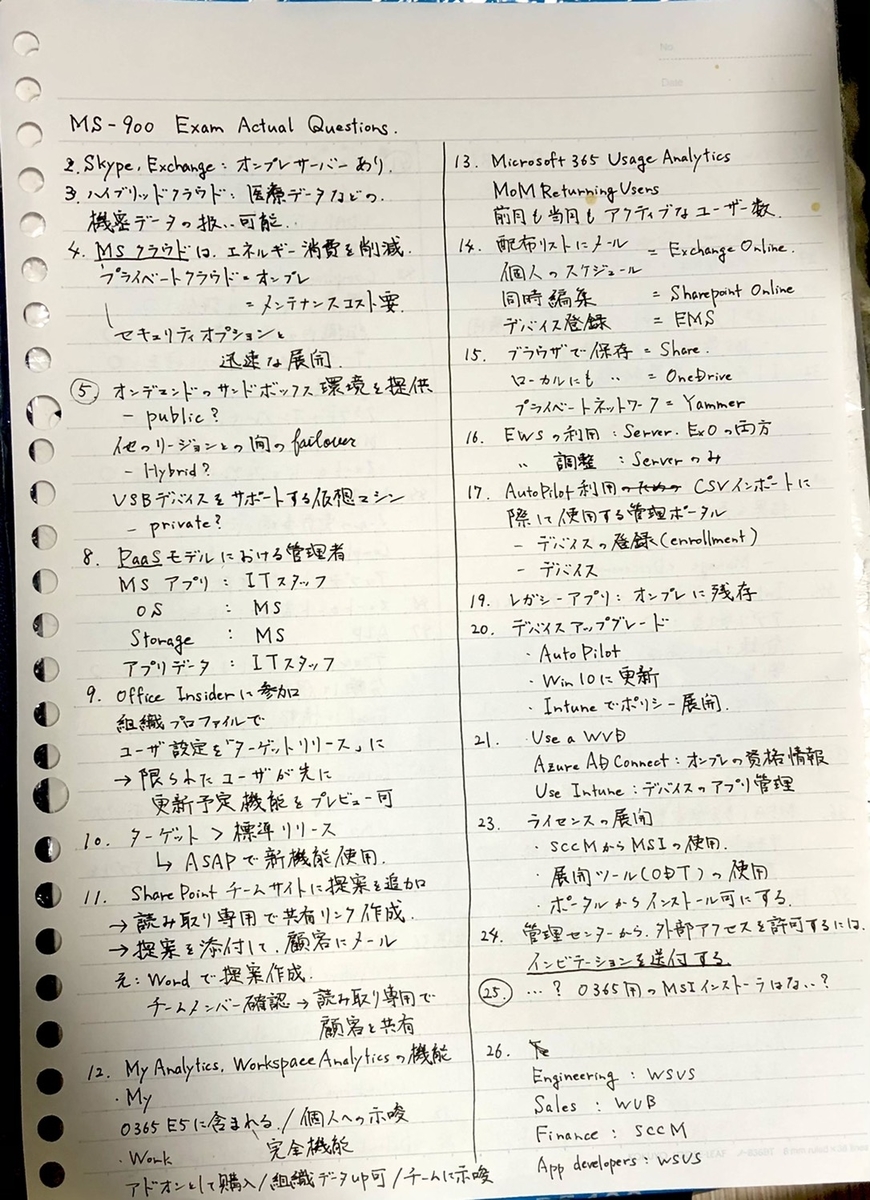 No.
Date
MS-900 Exam Actual Questions.
2. Skype, Exchange : オンプレサーバーあり.
3. ハイブリッドクラウド : 医療データなどの.
機密データの扱い可能.
4. MSクラウドは、エネルギー消費を削減.
プライベートクラウド = オンプレ
= メンテナンスコスト要.
セキュリティオプションと
迅速な展開.
⑤. オンデマンドのサンドボックス環境を提供
- public?
他のリージョンとの間のfailover
- Hybrid?
USBデバイスをサポートする仮想マシン
- private?
8. PaaSモデルにおける管理者
MS アプリ : ITスタッフ
OS : MS
Storage : MS
アプリデータ : ITスタッフ
9. Office Insiderに参加
組織プロファイルで
ユーザ設定を「ターゲットリリース」に
→ 限られたユーザが先に
更新予定機能をプレビュー可
10. ターゲット > 標準リリース
↳ ASAPで新機能使用.
11. SharePoint チームサイトに提案を追加
→ 読み取り専用で共有リンク作成.
→ 提案を添付して、顧客にメール
元 : Wordで提案作成.
チームメンバー確認 → 読み取り専用で
顧客と共有
12. My Analytics, Workspace Analyticsの機能
・My
O365 E5に含まれる / 個人への示唆
完全機能
・Work
アドオンとして購入 / 組織データup可 / チームに示唆
13. Microsoft 365 Usage Analytics
MoM Returning Users
前月も当月もアクティブなユーザー数.
14. 配布リストにメール = Exchange Online.
個人のスケジュール
同時編集 = Sharepoint Online
デバイス登録 = EMS
15. ブラウザで保存 = Share.
ローカルにも 〃 = OneDrive
プライベートネットワーク = Yammer
16. EWSの利用 : Server. ExOの両方
〃 調整 : Serverのみ
17. AutoPilot利用 CSVインポートに
際して使用する管理ポータル
- デバイスの登録(enrollment)
- デバイス
19. レガシーアプリ : オンプレに残存
20. デバイスアップグレード
・Auto Pilot
・Win 10に更新
・Intuneでポリシー展開.
21. Use a WUB
Azure AD Connect : オンプレの資格情報
Use Intune : デバイスのアプリ管理
23. ライセンスの展開
・SCCMからMSIの使用.
・展開ツール(ODT)の使用
・ポータルからインストール可にする.
24. 管理センターから、外部アクセスを許可するには、
インビテーションを送付する.
㉕. …? O365用のMSIインストーラはない?
26.
Engineering : WSUS
Sales : WUB
Finance : SCCM
App developers : WSUS